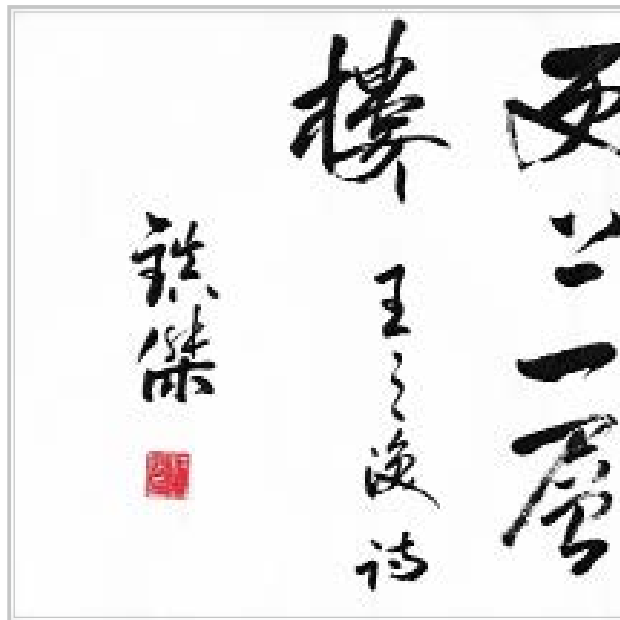 更上一層
樓 王之渙詩
鎮傑